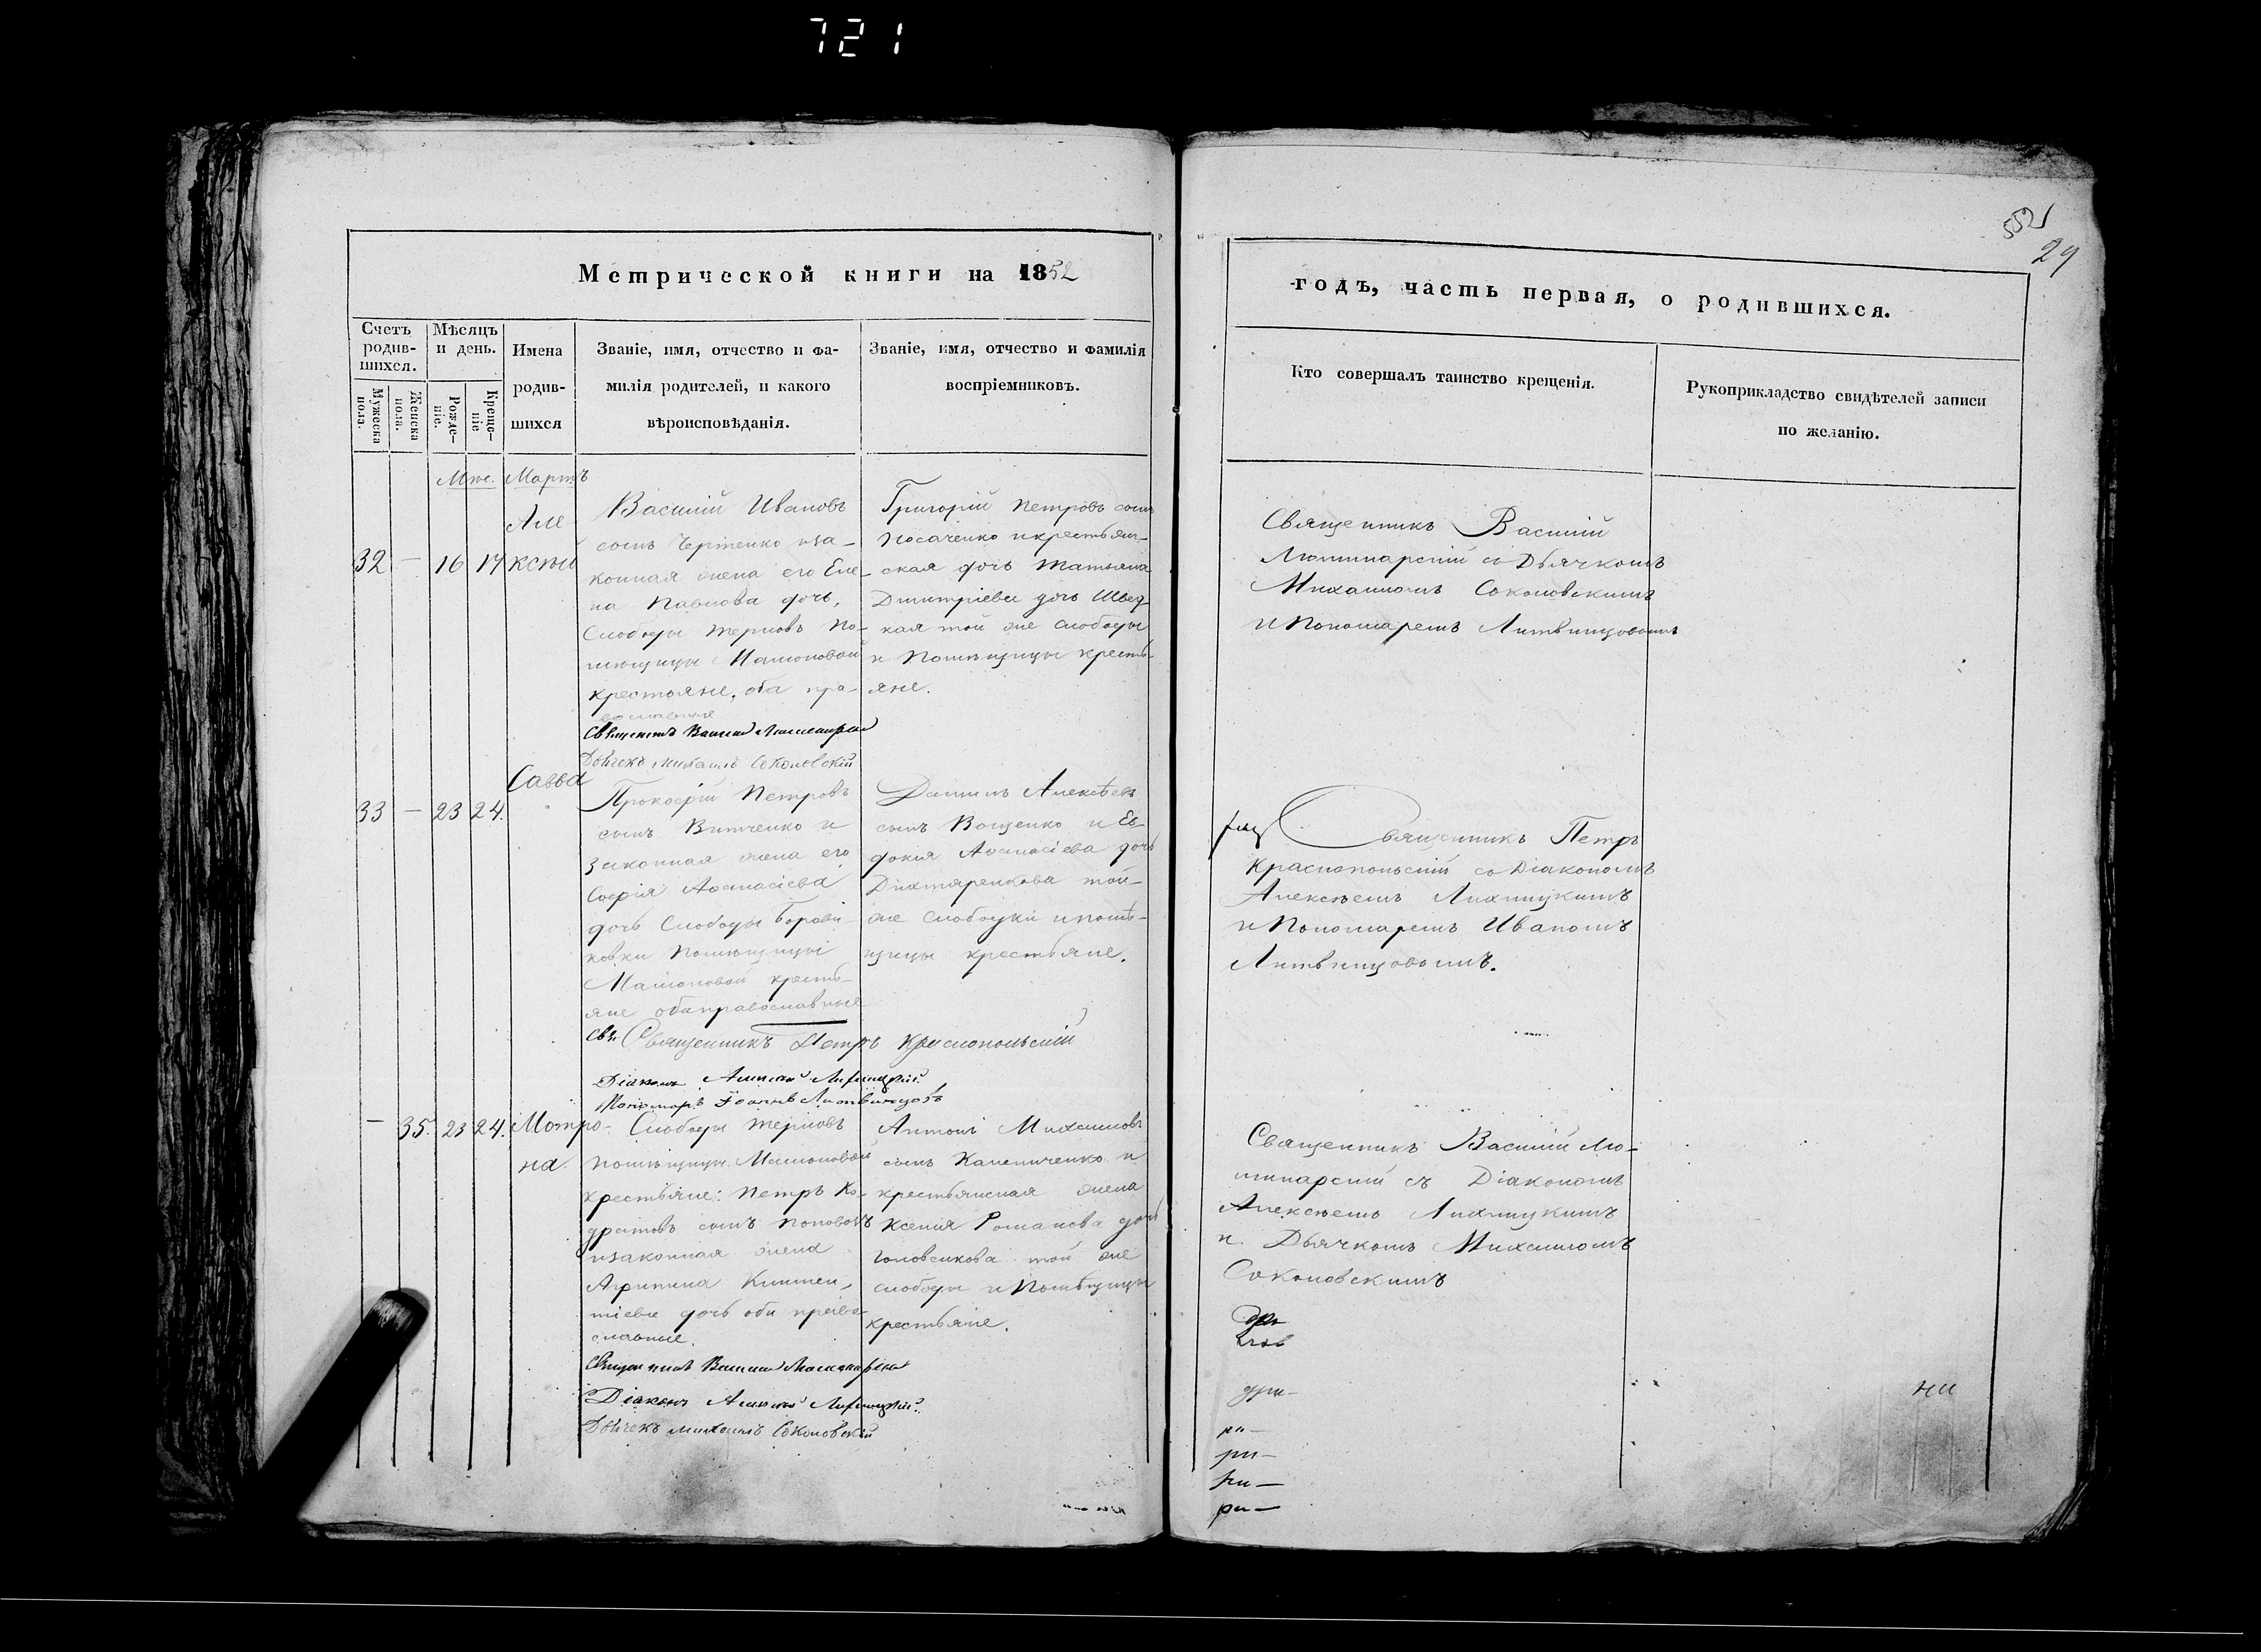 721
552
29
Метрической книги на 1852
годъ, часть первая, о родившихся.
Счетъ родив-шихся.
Мужеска пола.
Женска пола.
Мѣсяцъ и день.
Рожде-ніе.
Креще-ніе
Имена
родив-
шихся
Званіе, имя, отчество и фа-
милія родителей, и какого
вѣроисповѣданія.
Званіе, имя, отчество и фамилія
воспріемниковъ.
Кто совершалъ таинство крещенія.
Рукоприкладство свидѣтелей записи
по желанію.
Мц. Мартъ
32 — 16 17
Але
ксѣй
Василій Ивановъ
сынъ Чертенко иза-
конная жена его Еле-
на Павлова дочь,
Слободы Терновъ По-
мѣщицы Малоновой
крестьяне, оба пра-
вославныя
Священикъ Василій
Дьячекъ Михаилъ Соколовскій
Григорій Петровъ сынъ
Носаченко и крестьян-
ская дочь Татьяна
Дмитріева дочь
кая той же слободы
и Помѣщицы кресть-
яне.
Священникъ Василій
со Дьячкомъ
Михаиломъ Соколовскимъ
и Пономаремъ Литвинцовымъ
33 — 23 24.
Савва
Прокофій Петровъ
сынъ Витченко и
законная жена его
Софія Аѳанасіева
дочь Слободы Борови-
ковки Помѣщицы
Малоновой кресть-
яне оба православные
Свя. Священникъ Петръ Краснопольскій
Діаконъ Алексѣй Лихницкій
Пономарь Іоаннъ Литвинцовъ
Даніилъ Алексѣевъ
сынъ Вощенко и Ев-
докія Аѳанасіева дочь
Дихтяренкова той-
же слободки и помѣ-
щицы крестьяне.
Священникъ Петръ
Краснопольскій со Діакономъ
Алексѣемъ Лихницкимъ
и Пономаремъ Иваномъ
Литвинцовымъ.
— 35. 23 24.
Мотро-
на.
Слободы Терновъ
Помѣщицы Малоновой
крестьяне: Петръ Ко-
дратовъ сынъ Поповъ
изаконная жена
Агрипина Климен-
тіева дочь оба право-
славные.
Священникъ Василій
Діаконъ Алексѣй Лихницкій
Дьячекъ Михаилъ Соколовскій
Антонъ Михайловъ
сынъ Капениченко и
крестьянская жена
Ксенія Романова дочь
той же
слободы и Помѣщицы
крестьяне.
Священникъ Василій
съ Діакономъ
Алексѣемъ Лихницкимъ
и Дьячкомъ Михаиломъ
Соколовскимъ
ни
ри—
ри—
ри—
ри—